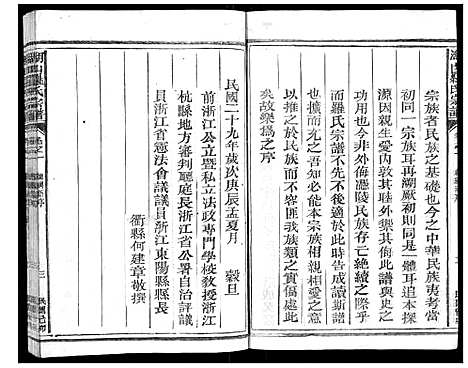 宗族者民族之基礎也今之中華民族夷考當
初同一宗族耳再溯厥初尚同是一體耳追本探
源因親生愛內敦其睦外禦其侮此譜與史之
功用也今非外侮憑陵民族存亡絶續之際乎
而羅氏宗譜不先不後適於此時告成讀斯譜
也擴而充之吾知必能本宗族相親相愛之意
以推之於民族而不容匪我族類之實偪處此
矣故樂爲之序
民國二十九年歲次庚辰孟夏月 穀旦
前浙江公立曁私立法政專門學校教授浙江
杭縣地方審判廳庭長浙江省公署自治評議
員浙江省憲法會議議員浙江東陽縣縣長
衢縣何建章敬撰
羅氏宗譜
三
民國己卯